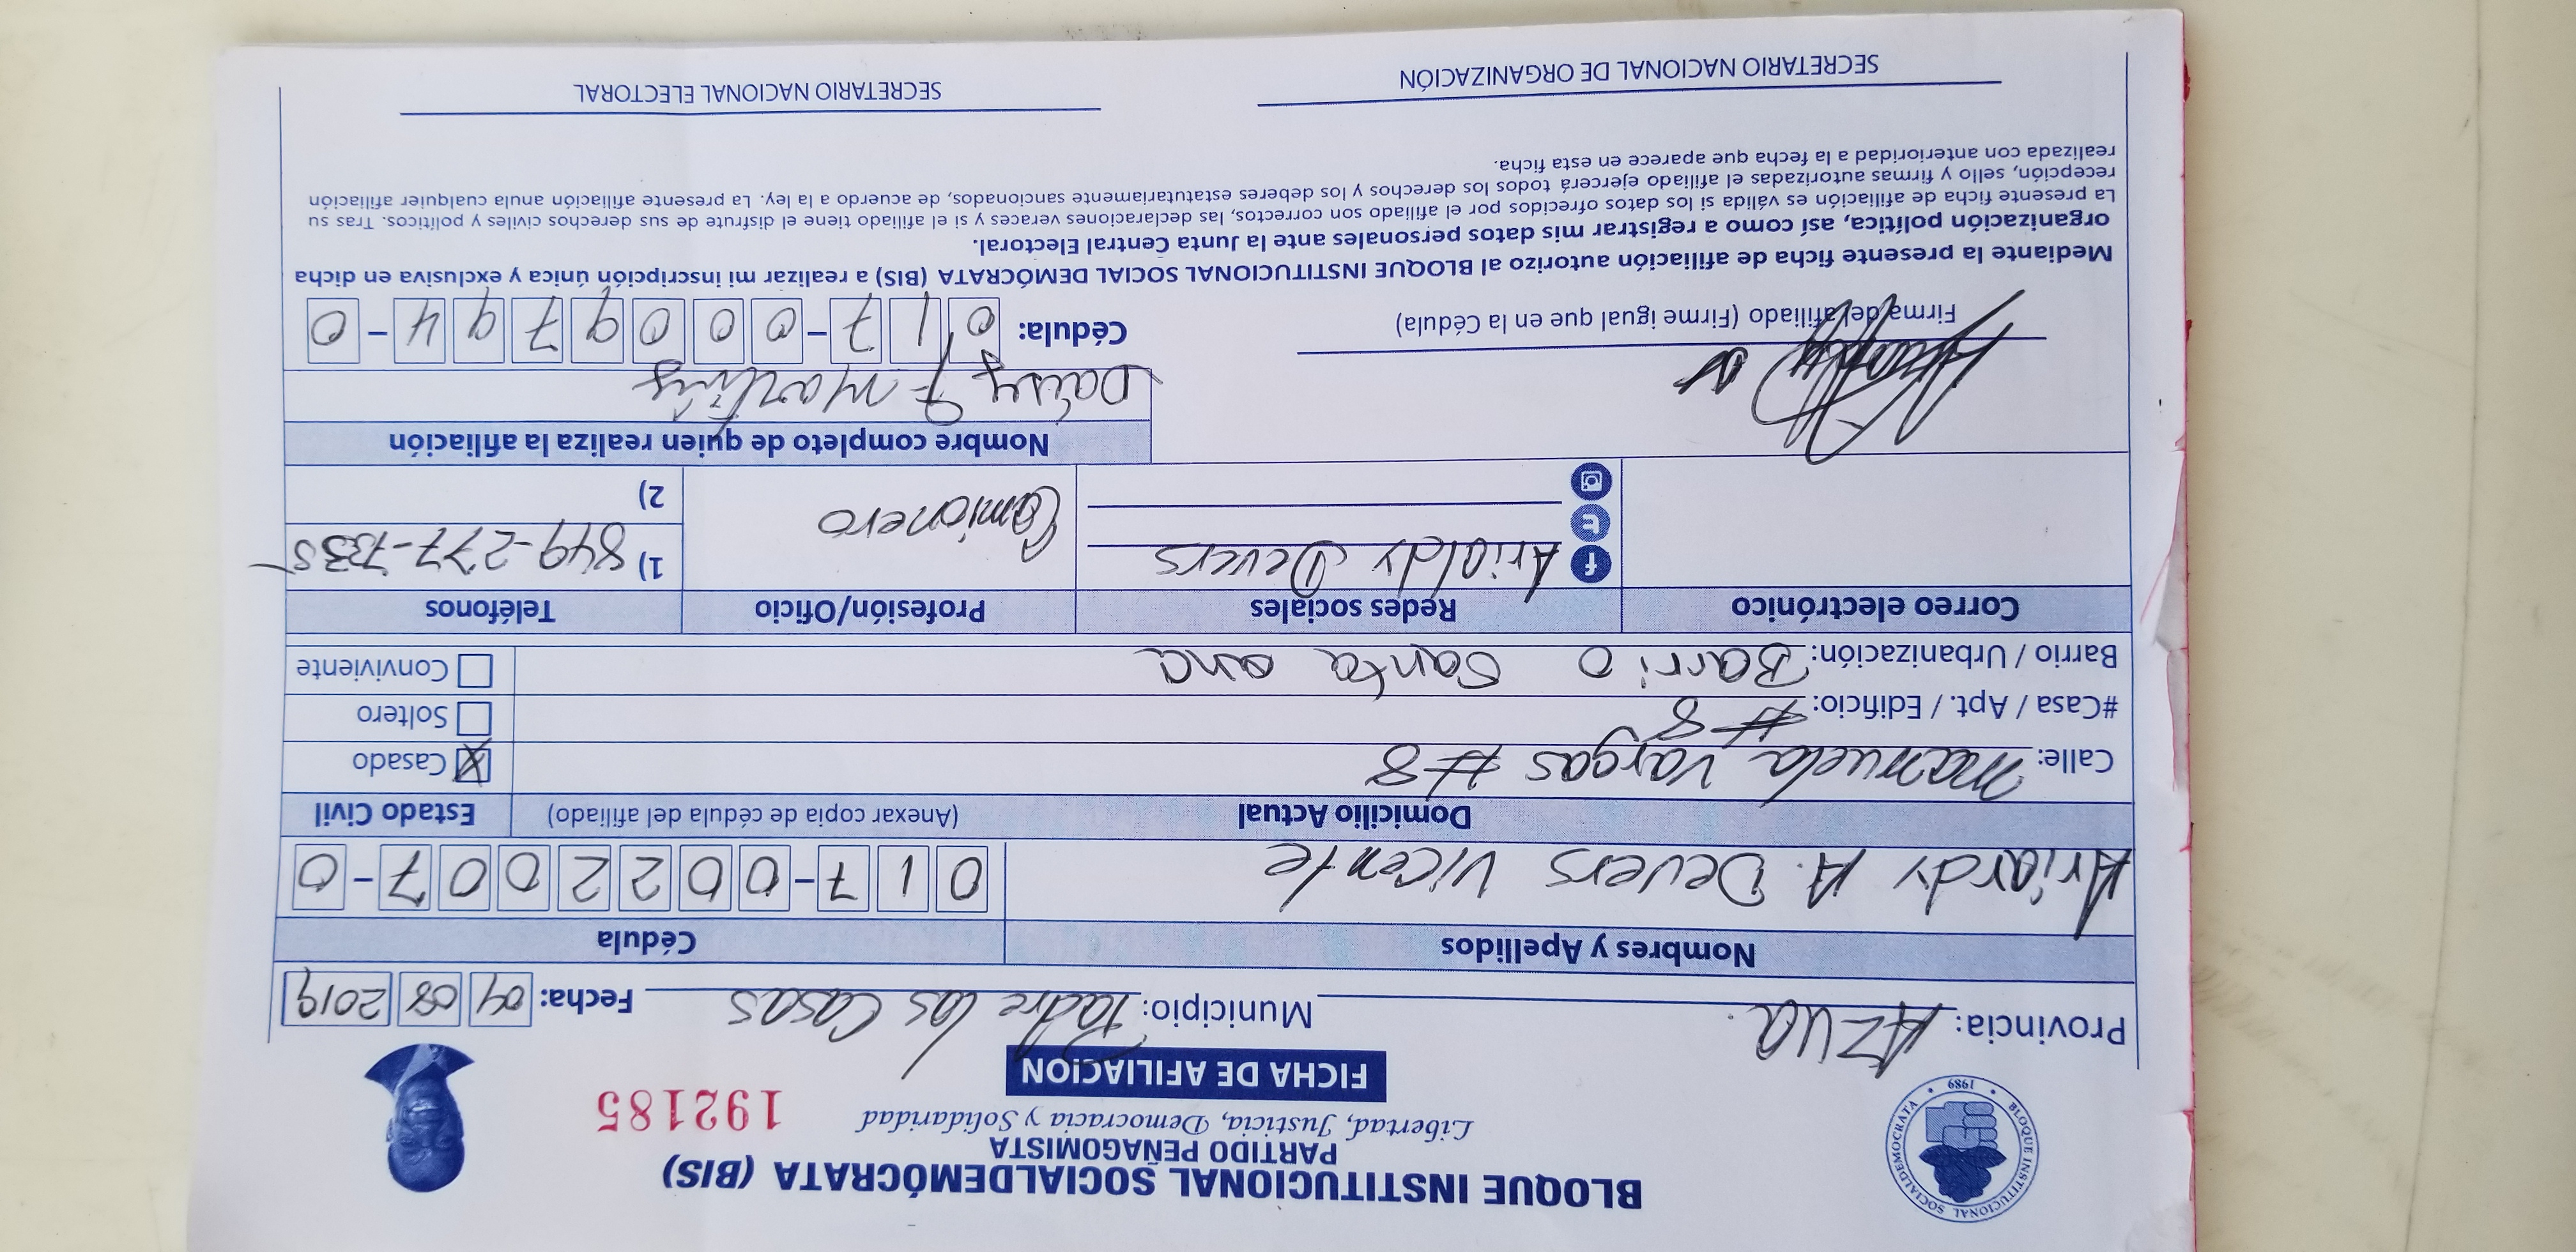 BLOQUE INSTITUCIONAL SOCIALDEMÓCRATA (BIS)
PARTIDO PEÑAGOMISTA
Libertad, Justicia, Democracia y Solidaridad
192185
BLOQUE INSTITUCIONAL SOCIALDEMOCRATA • 1989 •
FICHA DE AFILIACION
Provincia: AZUA. Municipio: Padre las Casas Fecha: 04 08 2019
Nombres y Apellidos Cédula
Ariardy A. Devers Vicente 017-0022007-0
Domicilio Actual (Anexar copia de cédula del afiliado) Estado Civil
Calle: manuela Vargas #8 X Casado
#Casa / Apt. / Edificio: #8 Soltero
Barrio / Urbanización: Barrio Santa ana Conviviente
Correo electrónico Redes sociales Profesión/Oficio Teléfonos
Arialdy Devers Camionero 1) 849-277-7335
2)
Nombre completo de quien realiza la afiliación
Daisy F martinez
Firma del afiliado (Firme igual que en la Cédula) Cédula: 017-0009794-0
Mediante la presente ficha de afiliación autorizo al BLOQUE INSTITUCIONAL SOCIAL DEMÓCRATA (BIS) a realizar mi inscripción única y exclusiva en dicha
organización política, así como a registrar mis datos personales ante la Junta Central Electoral.
La presente ficha de afiliación es válida si los datos ofrecidos por el afiliado son correctos, las declaraciones veraces y si el afiliado tiene el disfrute de sus derechos civiles y políticos. Tras su
recepción, sello y firmas autorizadas el afiliado ejercerá todos los derechos y los deberes estatutariamente sancionados, de acuerdo a la ley. La presente afiliación anula cualquier afiliación
realizada con anterioridad a la fecha que aparece en esta ficha.
SECRETARIO NACIONAL DE ORGANIZACIÓN SECRETARIO NACIONAL ELECTORAL